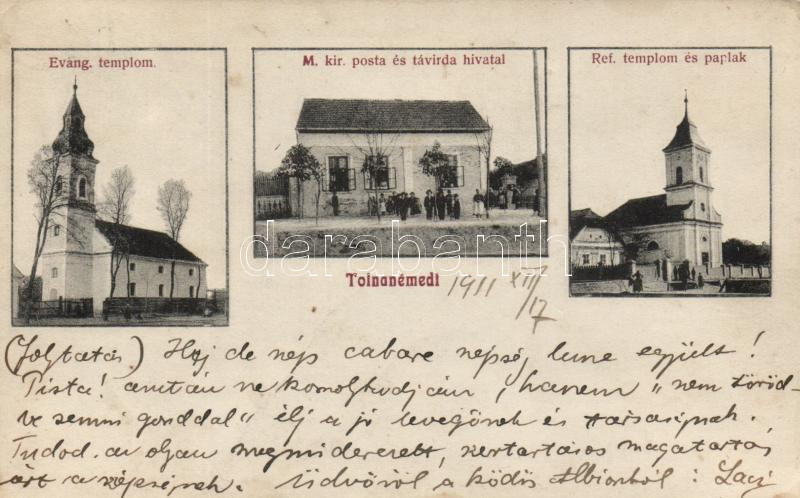 Evang. templom.
M. kir. posta és távirda hivatal
Ref. templom és paplak
darabanth.com
Tolnanémedi
1911 XII/17
(Folytatás.) Haj de nép cabare népség lenne együtt!
Pista! amután ne komolykodjám, hanem "nem törőd-
ve semmi gonddal" élj a jó levegőnek és társaságnak.
Tudod. az olyan megmideredett, kertartásos magatartás
árt a szépségnek. Üdvözöl a ködös Albionból: Laci